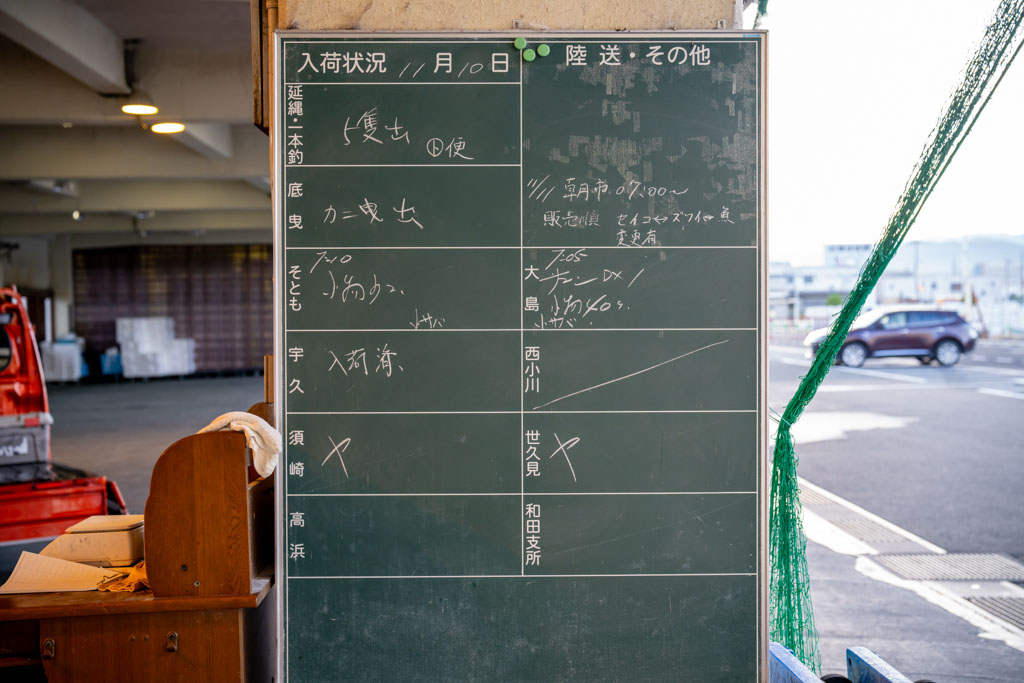 入荷状況 11月10日
陸送・その他
延縄・一本釣
5隻出
ト便
底曳
カニ曳出
11/11 朝市 07:00〜
販売順 セイコ↔ズワイ↔魚
変更有
そとも
7:10
小物少々
小サバ
大島
7:05
DX 1
小物40s.
小サバ
宇久
入荷済
西小川
須崎
や
世久見
や
高浜
和田支所